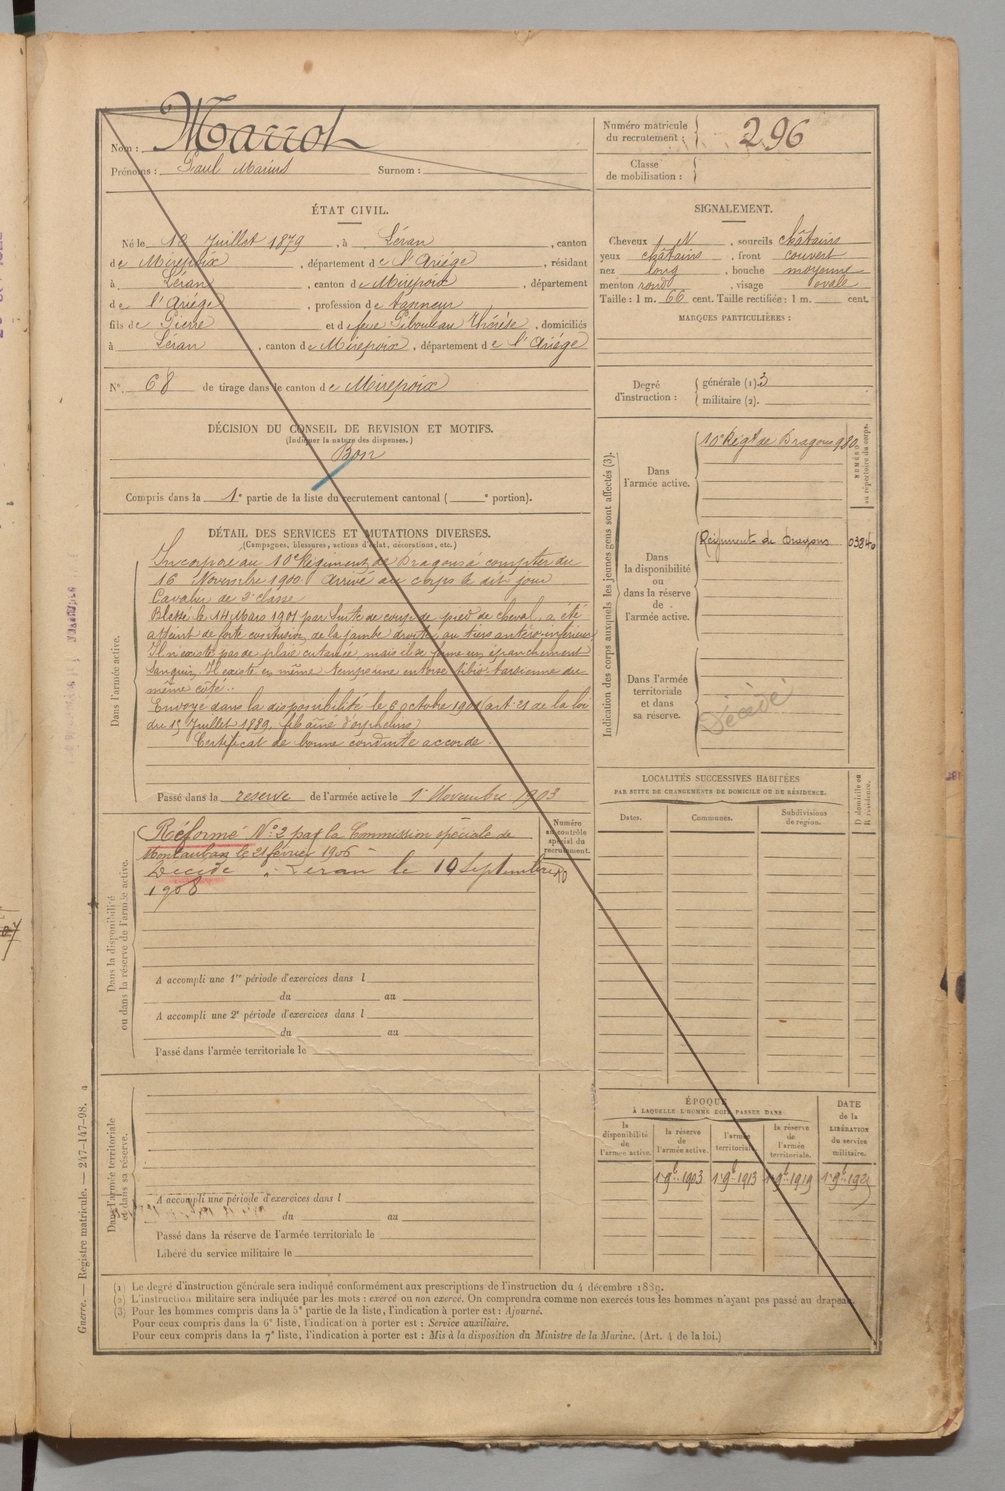 Nom : Marrot
Prénoms : Paul Marius Surnom :
Numéro matricule du recrutement : 296
Classe de mobilisation :
ÉTAT CIVIL.
Né le 10 Juillet 1879, à Léran, canton
de Mirepoix, département de l'Ariège, résidant
à Léran, canton de Mirepoix, département
de l'Ariège, profession de tanneur
fils de Pierre et de feue Pibouleau Thérèse, domiciliés
à Léran, canton de Mirepoix, département de l'Ariège
N° 68 de tirage dans le canton de Mirepoix
SIGNALEMENT.
Cheveux , sourcils châtains
yeux châtains, front couvert
nez long, bouche moyenne
menton rond, visage ovale
Taille : 1 m. 66 cent. Taille rectifiée : 1 m. cent.
MARQUES PARTICULIÈRES :
Degré d'instruction : générale (1). 3
militaire (2).
DÉCISION DU CONSEIL DE REVISION ET MOTIFS.
(Indiquer la nature des dispenses.)
Bon
Compris dans la 1e partie de la liste du recrutement cantonal ( e portion).
DÉTAIL DES SERVICES ET MUTATIONS DIVERSES.
(Campagnes, blessures, actions d'éclat, décorations, etc.)
Dans l'armée active.
Incorporé au 10e Régiment de Dragons à compter du
16 Novembre 1900. Arrivé au corps le dit jour
Cavalier de 2e classe
Blessé le 14 Mars 1901 par suite de coup de pied de cheval, a été
atteint de forte contusion de la jambe droite, au tiers antéro-inférieur
Il n'existe pas de plaie cutanée, mais il se forme un épanchement
sanguin. Il existe en même temps une entorse tibio-tarsienne du
même côté.
Envoyé dans la disponibilité le 6 octobre 1901 (art. 21 de la loi
du 15 Juillet 1889. fils aîné d'orphelins)
Certificat de bonne conduite accordé.
Passé dans la réserve de l'armée active le 1er Novembre 1903
Dans la disponibilité ou dans la réserve de l'armée active.
Numéro au contrôle spécial du recrutement.
Réformé N° 2 par la Commission spéciale de
Montauban le 21 février 1906
Décédé à Léran le 19 Septembre
1908
A accompli une 1re période d'exercices dans l
du au
A accompli une 2e période d'exercices dans l
du au
Passé dans l'armée territoriale le
Dans l'armée territoriale et dans sa réserve.
A accompli une période d'exercices dans l
du au
Passé dans la réserve de l'armée territoriale le
Libéré du service militaire le
Indication des corps auxquels les jeunes gens sont affectés (3).
NUMÉRO au répertoire du corps.
Dans l'armée active.
10e Régt de Dragons 980
Dans la disponibilité ou dans la réserve de l'armée active.
Régiment de Dragons
Dans l'armée territoriale et dans sa réserve.
Décédé
LOCALITÉS SUCCESSIVES HABITÉES
PAR SUITE DE CHANGEMENTS DE DOMICILE OU DE RÉSIDENCE.
Dates. Communes. Subdivisions de région. D. domicile ou R. résidence.
ÉPOQUE
À LAQUELLE L'HOMME DOIT PASSER DANS
DATE de la LIBÉRATION du service militaire.
la disponibilité de l'armée active. la réserve de l'armée active. l'armée territoriale. la réserve de l'armée territoriale.
1er 9bre 1903 1er 9bre 1913 1er 9bre 1919
(1) Le degré d'instruction générale sera indiqué conformément aux prescriptions de l'instruction du 4 décembre 1889.
(2) L'instruction militaire sera indiquée par les mots : exercé ou non exercé. On comprendra comme non exercés tous les hommes n'ayant pas passé au drapeau.
(3) Pour les hommes compris dans la 5e partie de la liste, l'indication à porter est : Ajourné.
Pour ceux compris dans la 6e liste, l'indication à porter est : Service auxiliaire.
Pour ceux compris dans la 7e liste, l'indication à porter est : Mis à la disposition du Ministre de la Marine. (Art. 4 de la loi.)
Guerre. — Registre matricule. — 247-147-98. a